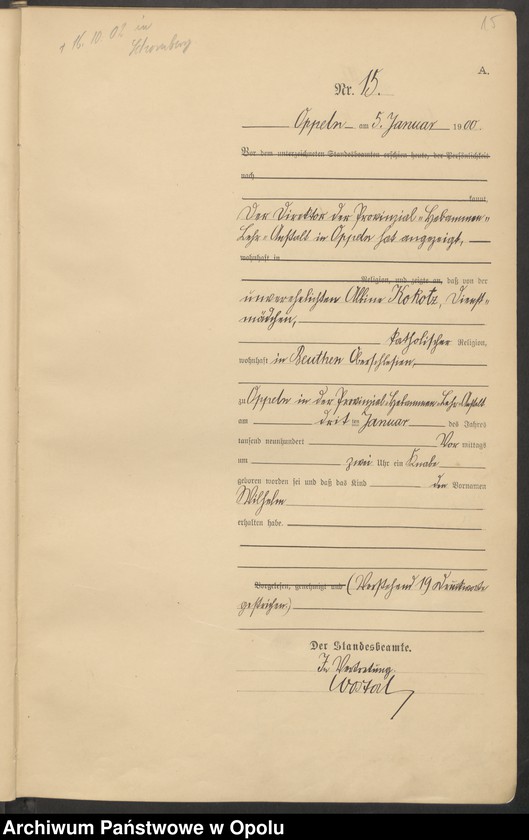 + 16. 10. 02 in
Schomberg
15
A.
Nr. 15.
Oppeln am 5. Januar 1900.
Vor dem unterzeichneten Standesbeamten erschien heute, der Persönlichkeit
nach
kannt,
Der Direktor der Provinzial-Hebammen-
Lehr-Anstalt in Oppeln hat angezeigt,
wohnhaft in
Religion, und zeigte an, daß von der
unverehelichten Albine Kokotz, Dienst-
mädchen,
katholischer Religion,
wohnhaft in Beuthen Oberschlesien,
zu Oppeln in der Provinzial-Hebammen-Lehr-Anstalt
am drit ten Januar des Jahres
tausend neunhundert Vor mittags
um zwei Uhr ein Knabe
geboren worden sei und daß das Kind den Vornamen
Wilhelm
erhalten habe.
Vorgelesen, genehmigt und (Vorstehend 19 Druckworte
gestrichen)
Der Standesbeamte.
In Vertretung.
Wostal
Archiwum Państwowe w Opolu